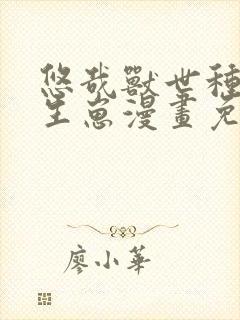 悠哉獸世種
生崽漫畫免
廖小華